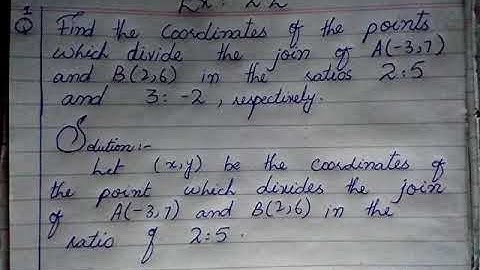 Q1 Find the coordinates of the points
which divide the join of A(-3,7)
and B(2,6) in the ratios 2:5
and 3:-2, respectively.
Solution:-
Let (x,y) be the coordinates of
the point which divides the join
of A(-3,7) and B(2,6) in the
ratio of 2:5.